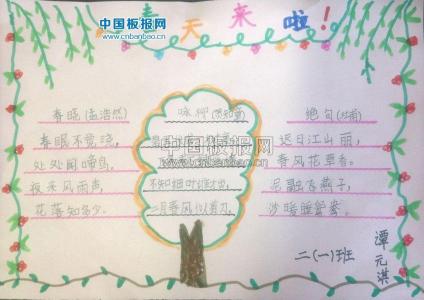 春天来啦!
中国板报网
www.cnbanbao.cn
春晓(孟浩然)
春眠不觉晓,
处处闻啼鸟,
夜来风雨声,
花落知多少。
咏柳(贺知章)
不知细叶谁裁出,
二月春风似剪刀。
绝句(杜甫)
迟日江山丽,
春风花草香。
泥融飞燕子,
沙暖睡鸳鸯。
中国板报网
二(一)班
谭元淇